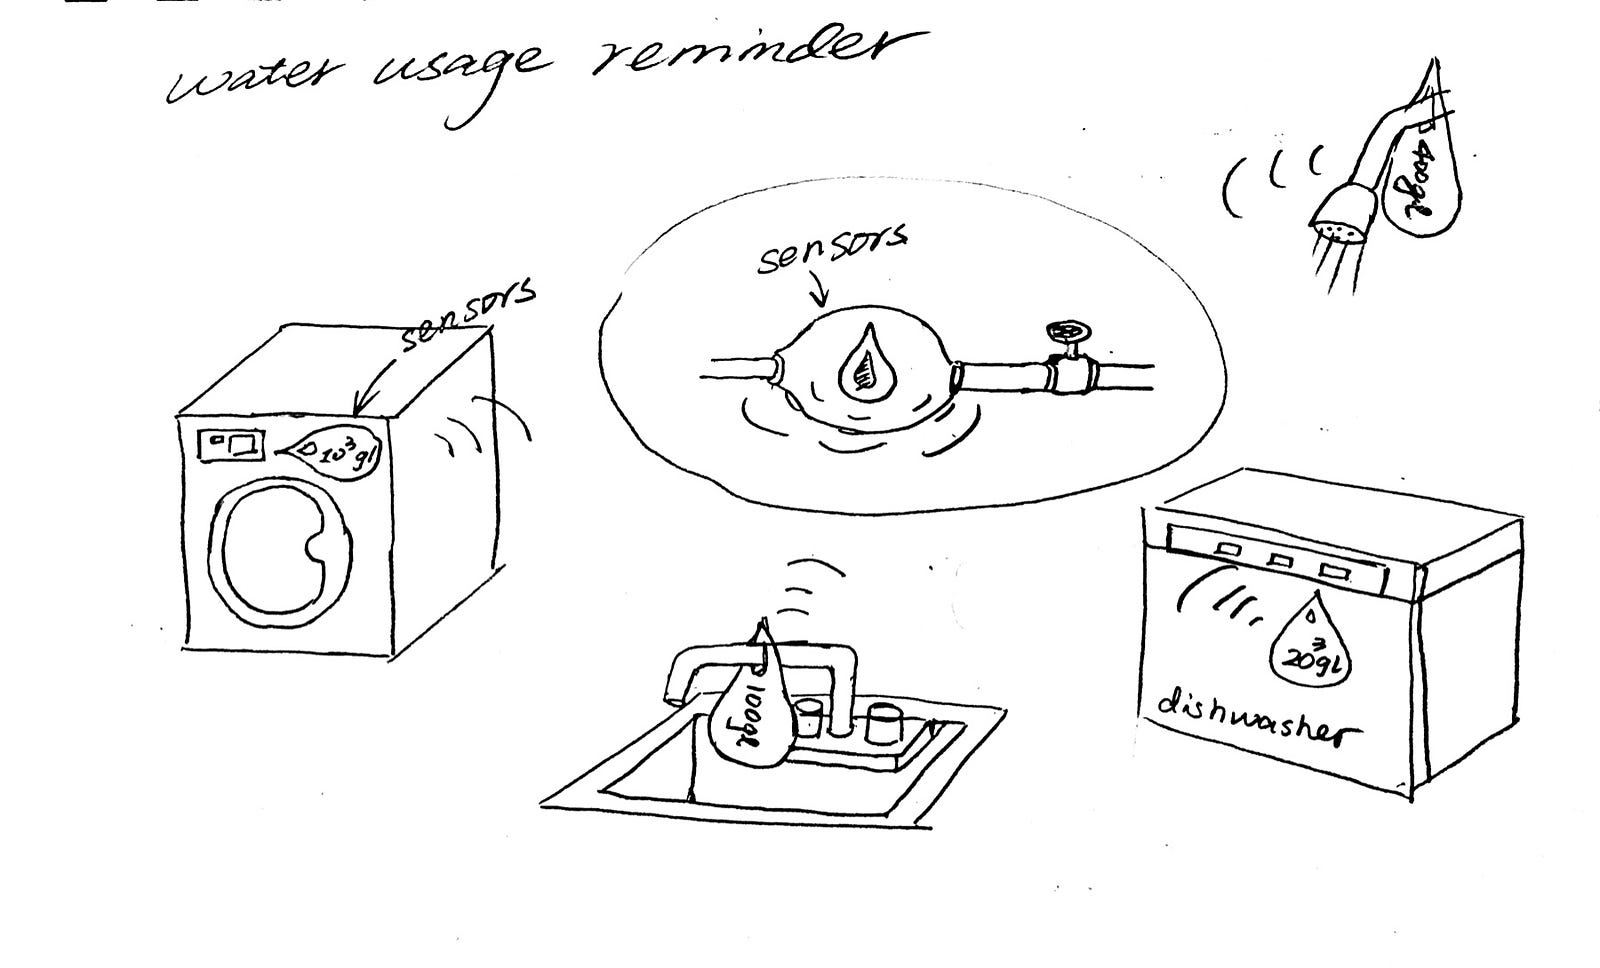 water usage reminder
400gl
sensors
sensors
10³gl
100gl
20³gl
dishwasher